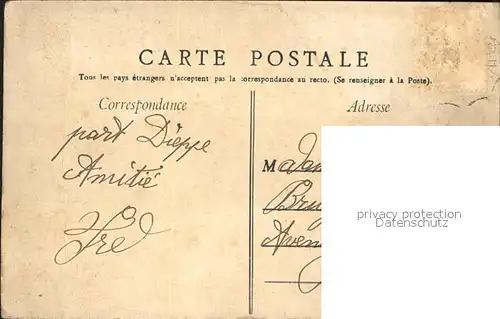 CARTE POSTALE
Tous les pays étrangers n'acceptent pas la correspondance au recto. (Se renseigner à la Poste).
Correspondance
Adresse
part Dieppe
Amitié
Madam
Bru
Aven
privacy protection
Datenschutz